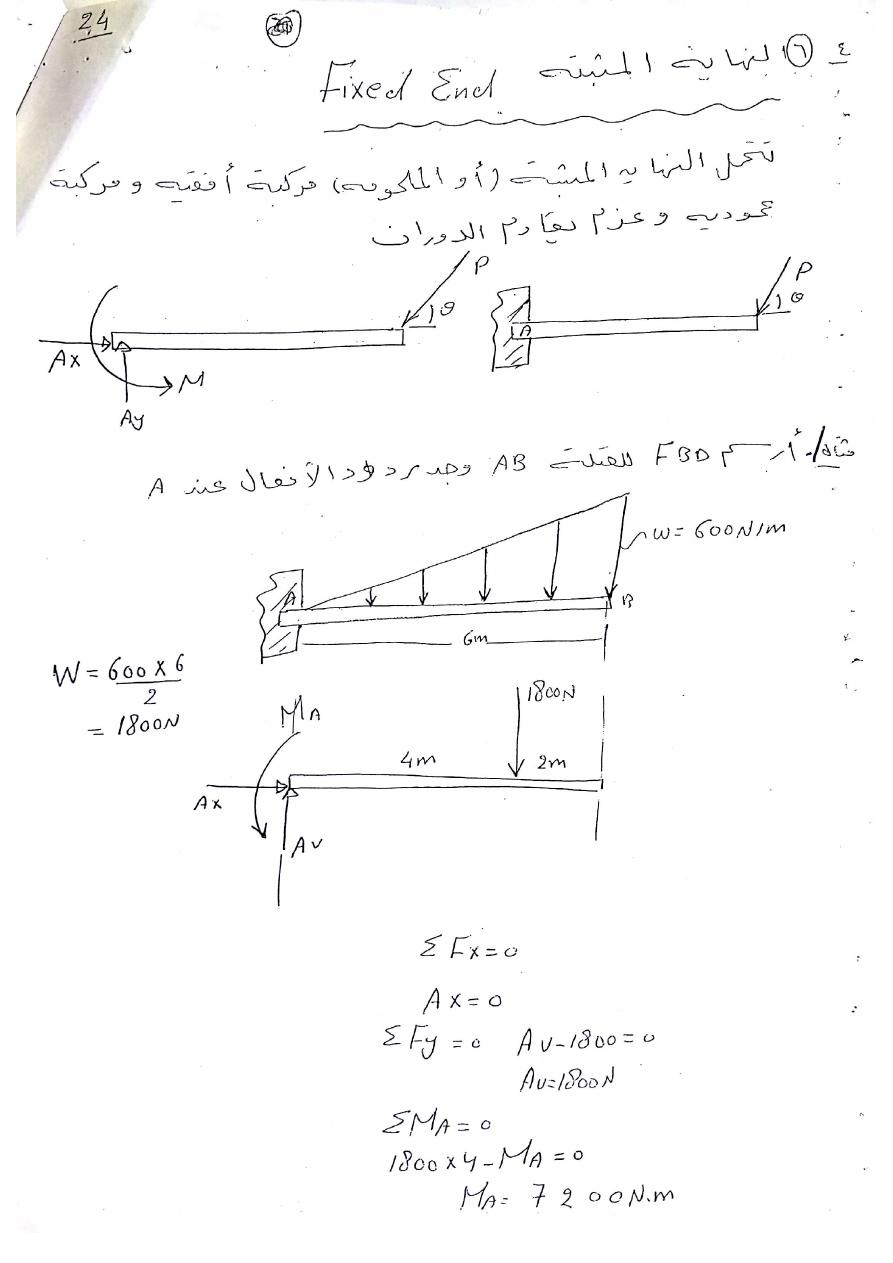 24
٤
⑥ النهاية المثبته Fixed End
تتحمل النهايه المثبتة (أو الملحومه) مركبة أفقيه و مركبة
عموديه و عزم يقاوم الدوران
P
θ
Ax
M
Ay
P
θ
A
مثال/. أرسم FBD للعتلة AB وجد ردود الأفعال عند A
w= 600N/m
A
B
6m
W = 600 x 6
2
= 1800N
MA
1800N
4m
2m
Ax
Av
Σ Fx = 0
Ax = 0
Σ Fy = 0 Av-1800 = 0
Av=1800N
ΣMA = 0
1800 x 4 - MA = 0
MA= 7200N.m